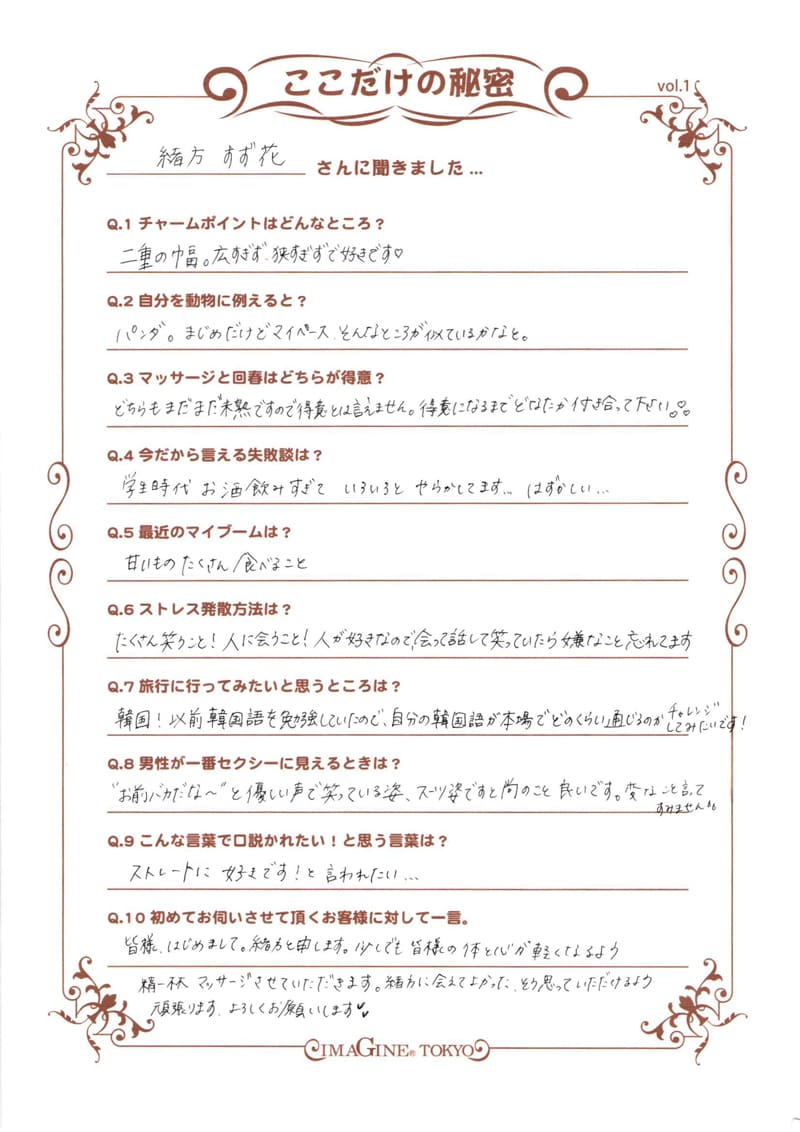 ここだけの秘密
vol.1
緒方 すず花 さんに聞きました...
Q.1 チャームポイントはどんなところ？
二重の幅。広すぎず、狭すぎずで好きです♡
Q.2 自分を動物に例えると？
パンダ。まじめだけどマイペース、そんなところが似ているかなと。
Q.3 マッサージと回春はどちらが得意？
どちらもまだまだ未熟ですので得意とは言えません。得意になるまでどなたか付き合って下さい♡♡
Q.4 今だから言える失敗談は？
学生時代 お酒飲みすぎて いろいろと やらかしてます... はずかしい...
Q.5 最近のマイブームは？
甘いもの たくさん 食べること
Q.6 ストレス発散方法は？
たくさん笑うこと！人に会うこと！人が好きなので、会って話して笑っていたら嫌なこと忘れてます
Q.7 旅行に行ってみたいと思うところは？
韓国！以前韓国語を勉強していたので、自分の韓国語が本場でどのくらい通じるのか チャレンジ
してみたいです！
Q.8 男性が一番セクシーに見えるときは？
"お前バカだな〜"と優しい声で笑っている姿、スーツ姿ですと尚のこと 良いです。変なこと言って
すみません
Q.9 こんな言葉で口説かれたい！と思う言葉は？
ストレートに 好きです！と 言われたい...
Q.10 初めてお伺いさせて頂くお客様に対して一言。
皆様、はじめまして。緒方と申します。少しでも 皆様の 体と心が 軽くなるよう
精一杯 マッサージさせていただきます。緒方に会えてよかった、そう思っていただけるよう
頑張ります、よろしくお願いします♥
IMAGINE® TOKYO